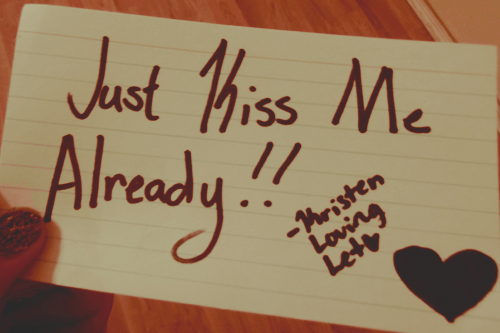 Just Kiss Me
Already!!
-Kristen
Loving
Let♥